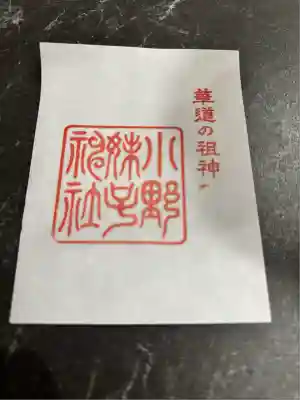 華道の祖神
小野
妹子
祠社